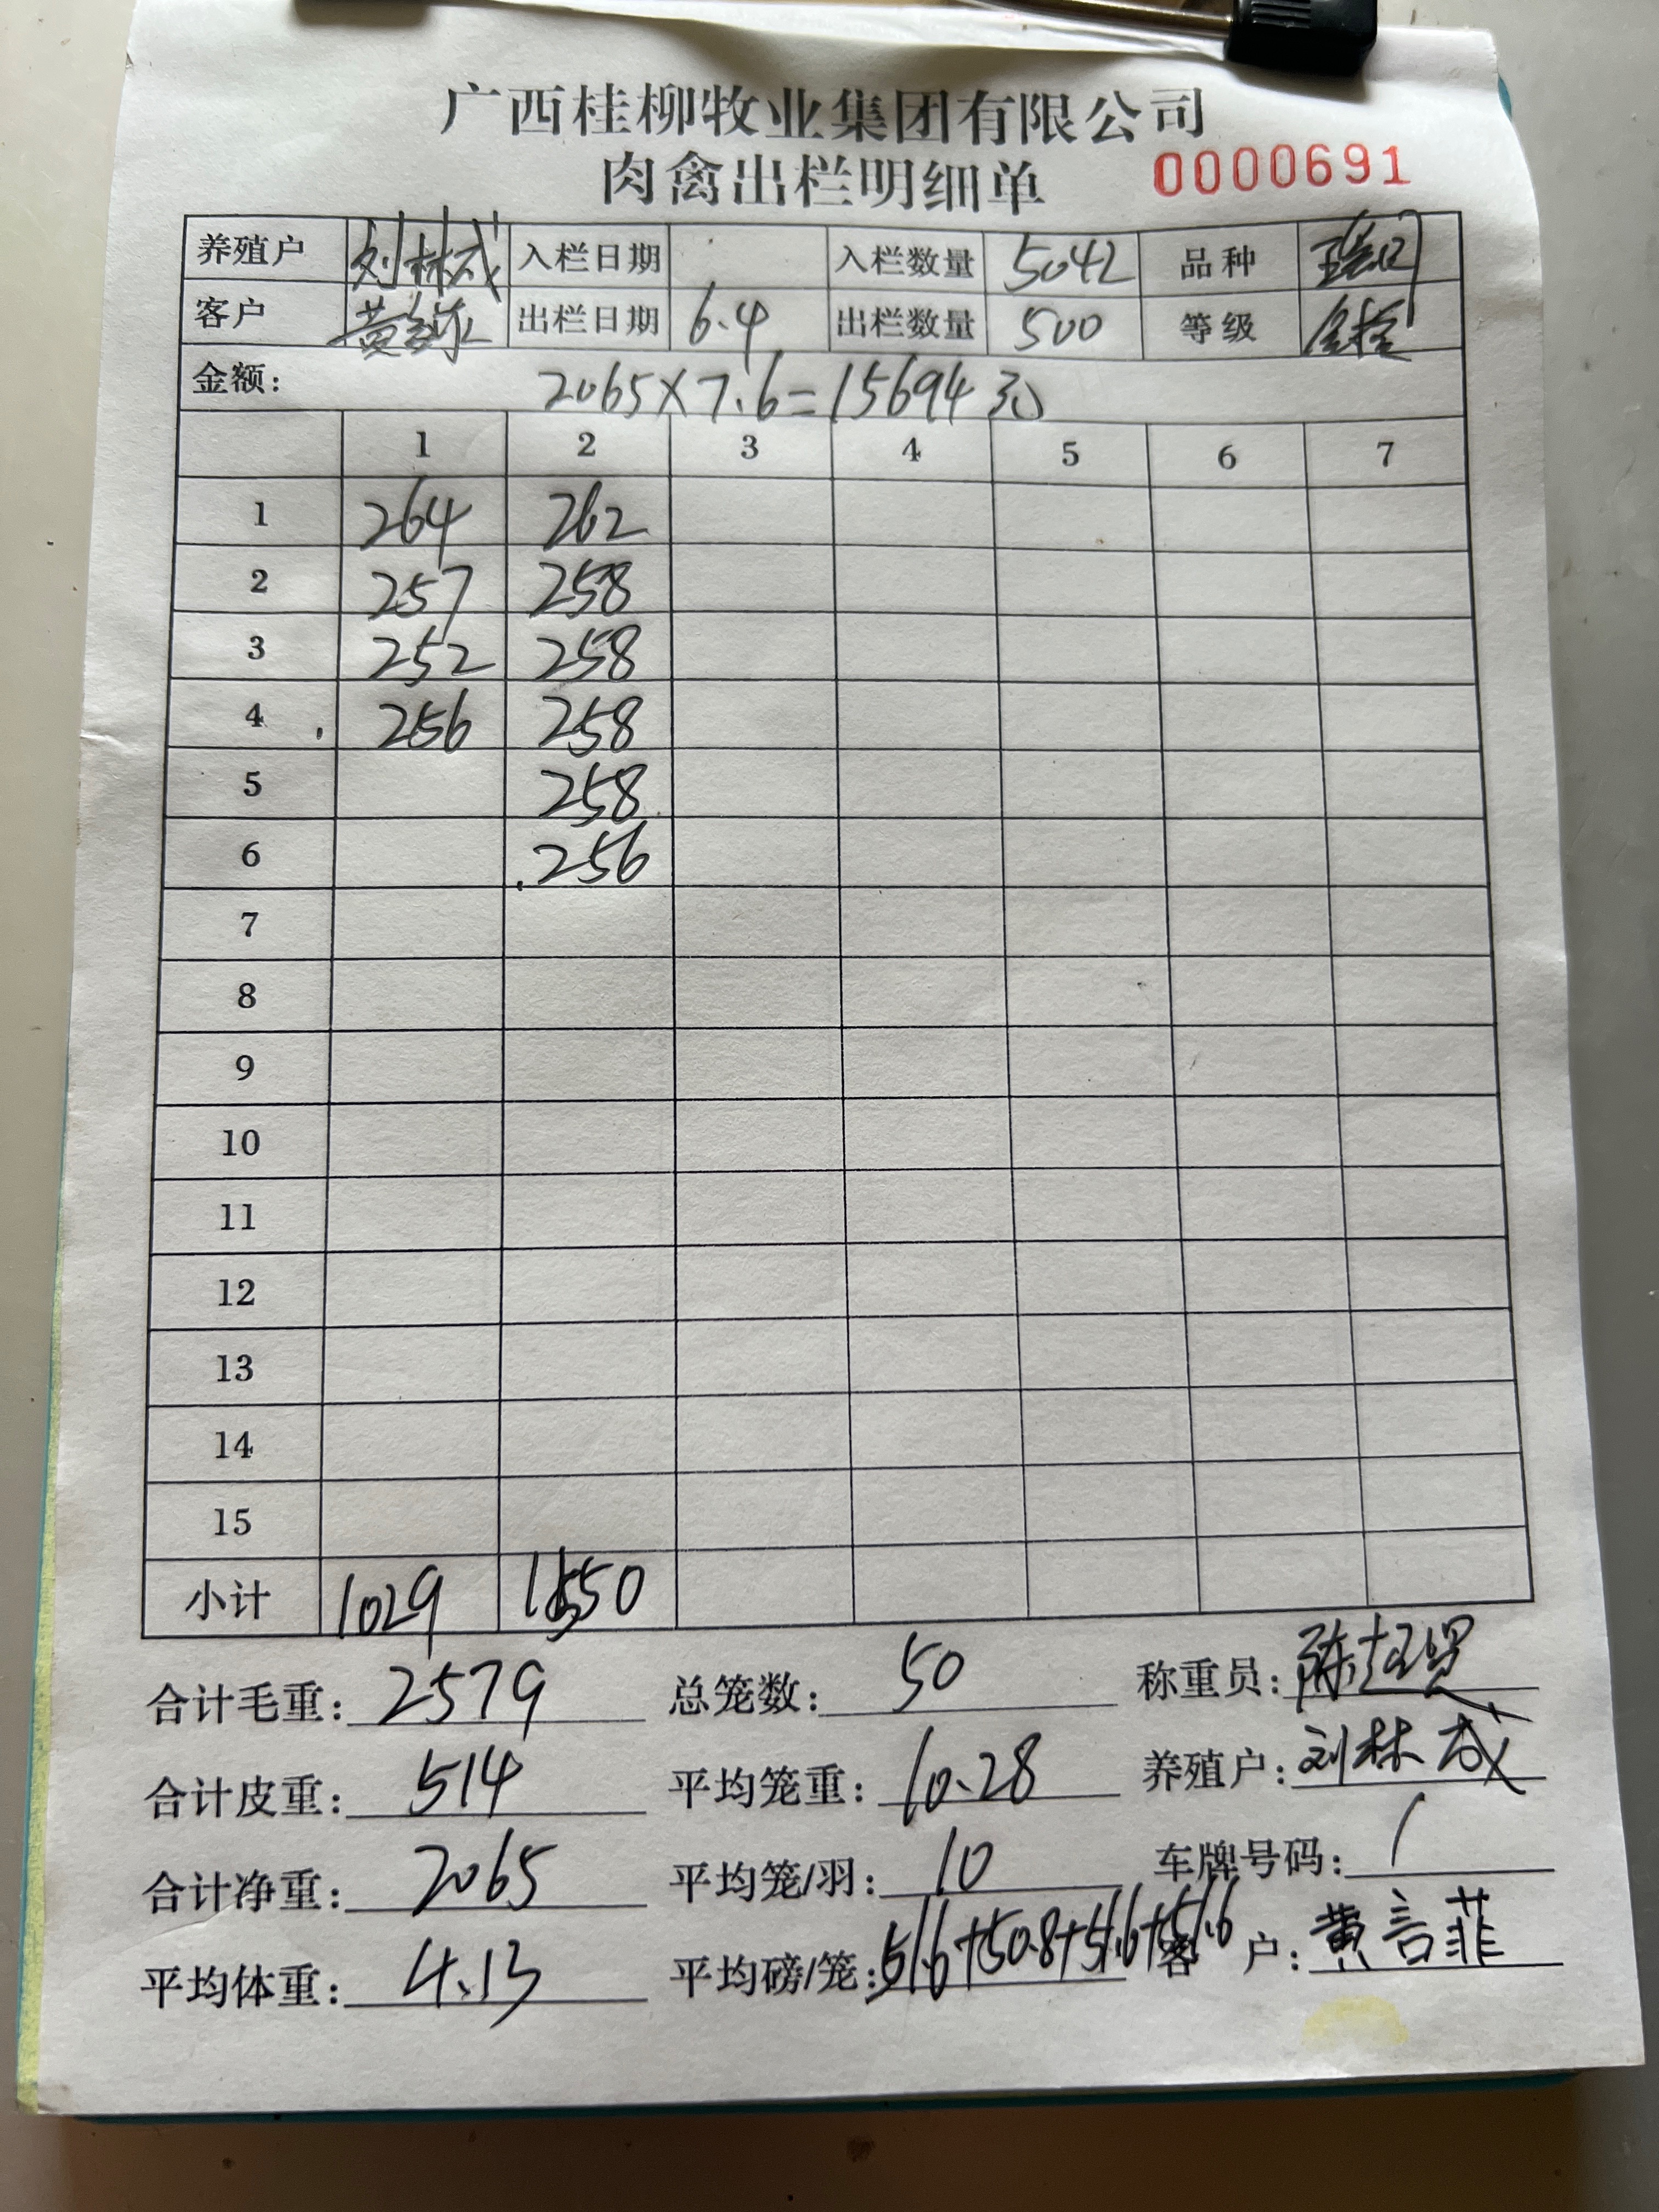 广西桂柳牧业集团有限公司
肉禽出栏明细单 0000691
养殖户 刘林成 入栏日期 入栏数量 5042 品种
客户 出栏日期 6.4 出栏数量 500 等级
金额: 2065×7.6=15694元
1 2 3 4 5 6 7
1 264 262
2 257 258
3 252 258
4 256 258
5 258
6 256
7
8
9
10
11
12
13
14
15
小计 1029 1550
合计毛重: 2579 总笼数: 50 称重员:
合计皮重: 514 平均笼重: 10.28 养殖户: 刘林成
合计净重: 2065 平均笼/羽: 10 车牌号码: /
平均体重: 4.13 平均磅/笼: 51.6+50.8+51.6+51.6 客 户: 黄言菲